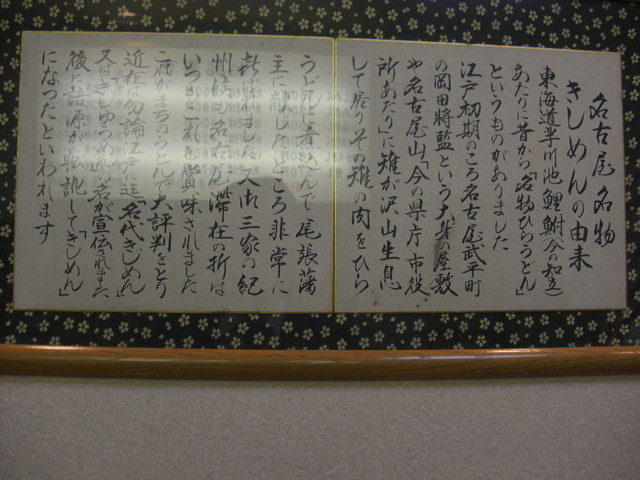 名古屋名物
きしめんの由来
東海道芋川池鯉鮒(今の知立)
あたりに昔から「名物ひらうどん」
というものがありました
江戸初期のころ名古屋武平町
の岡田将監という大身の屋敷
や名古屋山「今の県庁市役
所あたり」に雉が沢山生息
して居りその雉の肉をひら
うどんに着込んで尾張藩
主に献じたところ非常に
喜ばれました又御三家の紀
州候も名古屋滞在の折は
いつもこれを賞味されました
これがまちのうどんで大評判をとり
近在は勿論江戸に迄「名代きしめん」
又はきじゆうめんの名が宣伝されました
後に語源が転訛して「きしめん」
になったといわれます